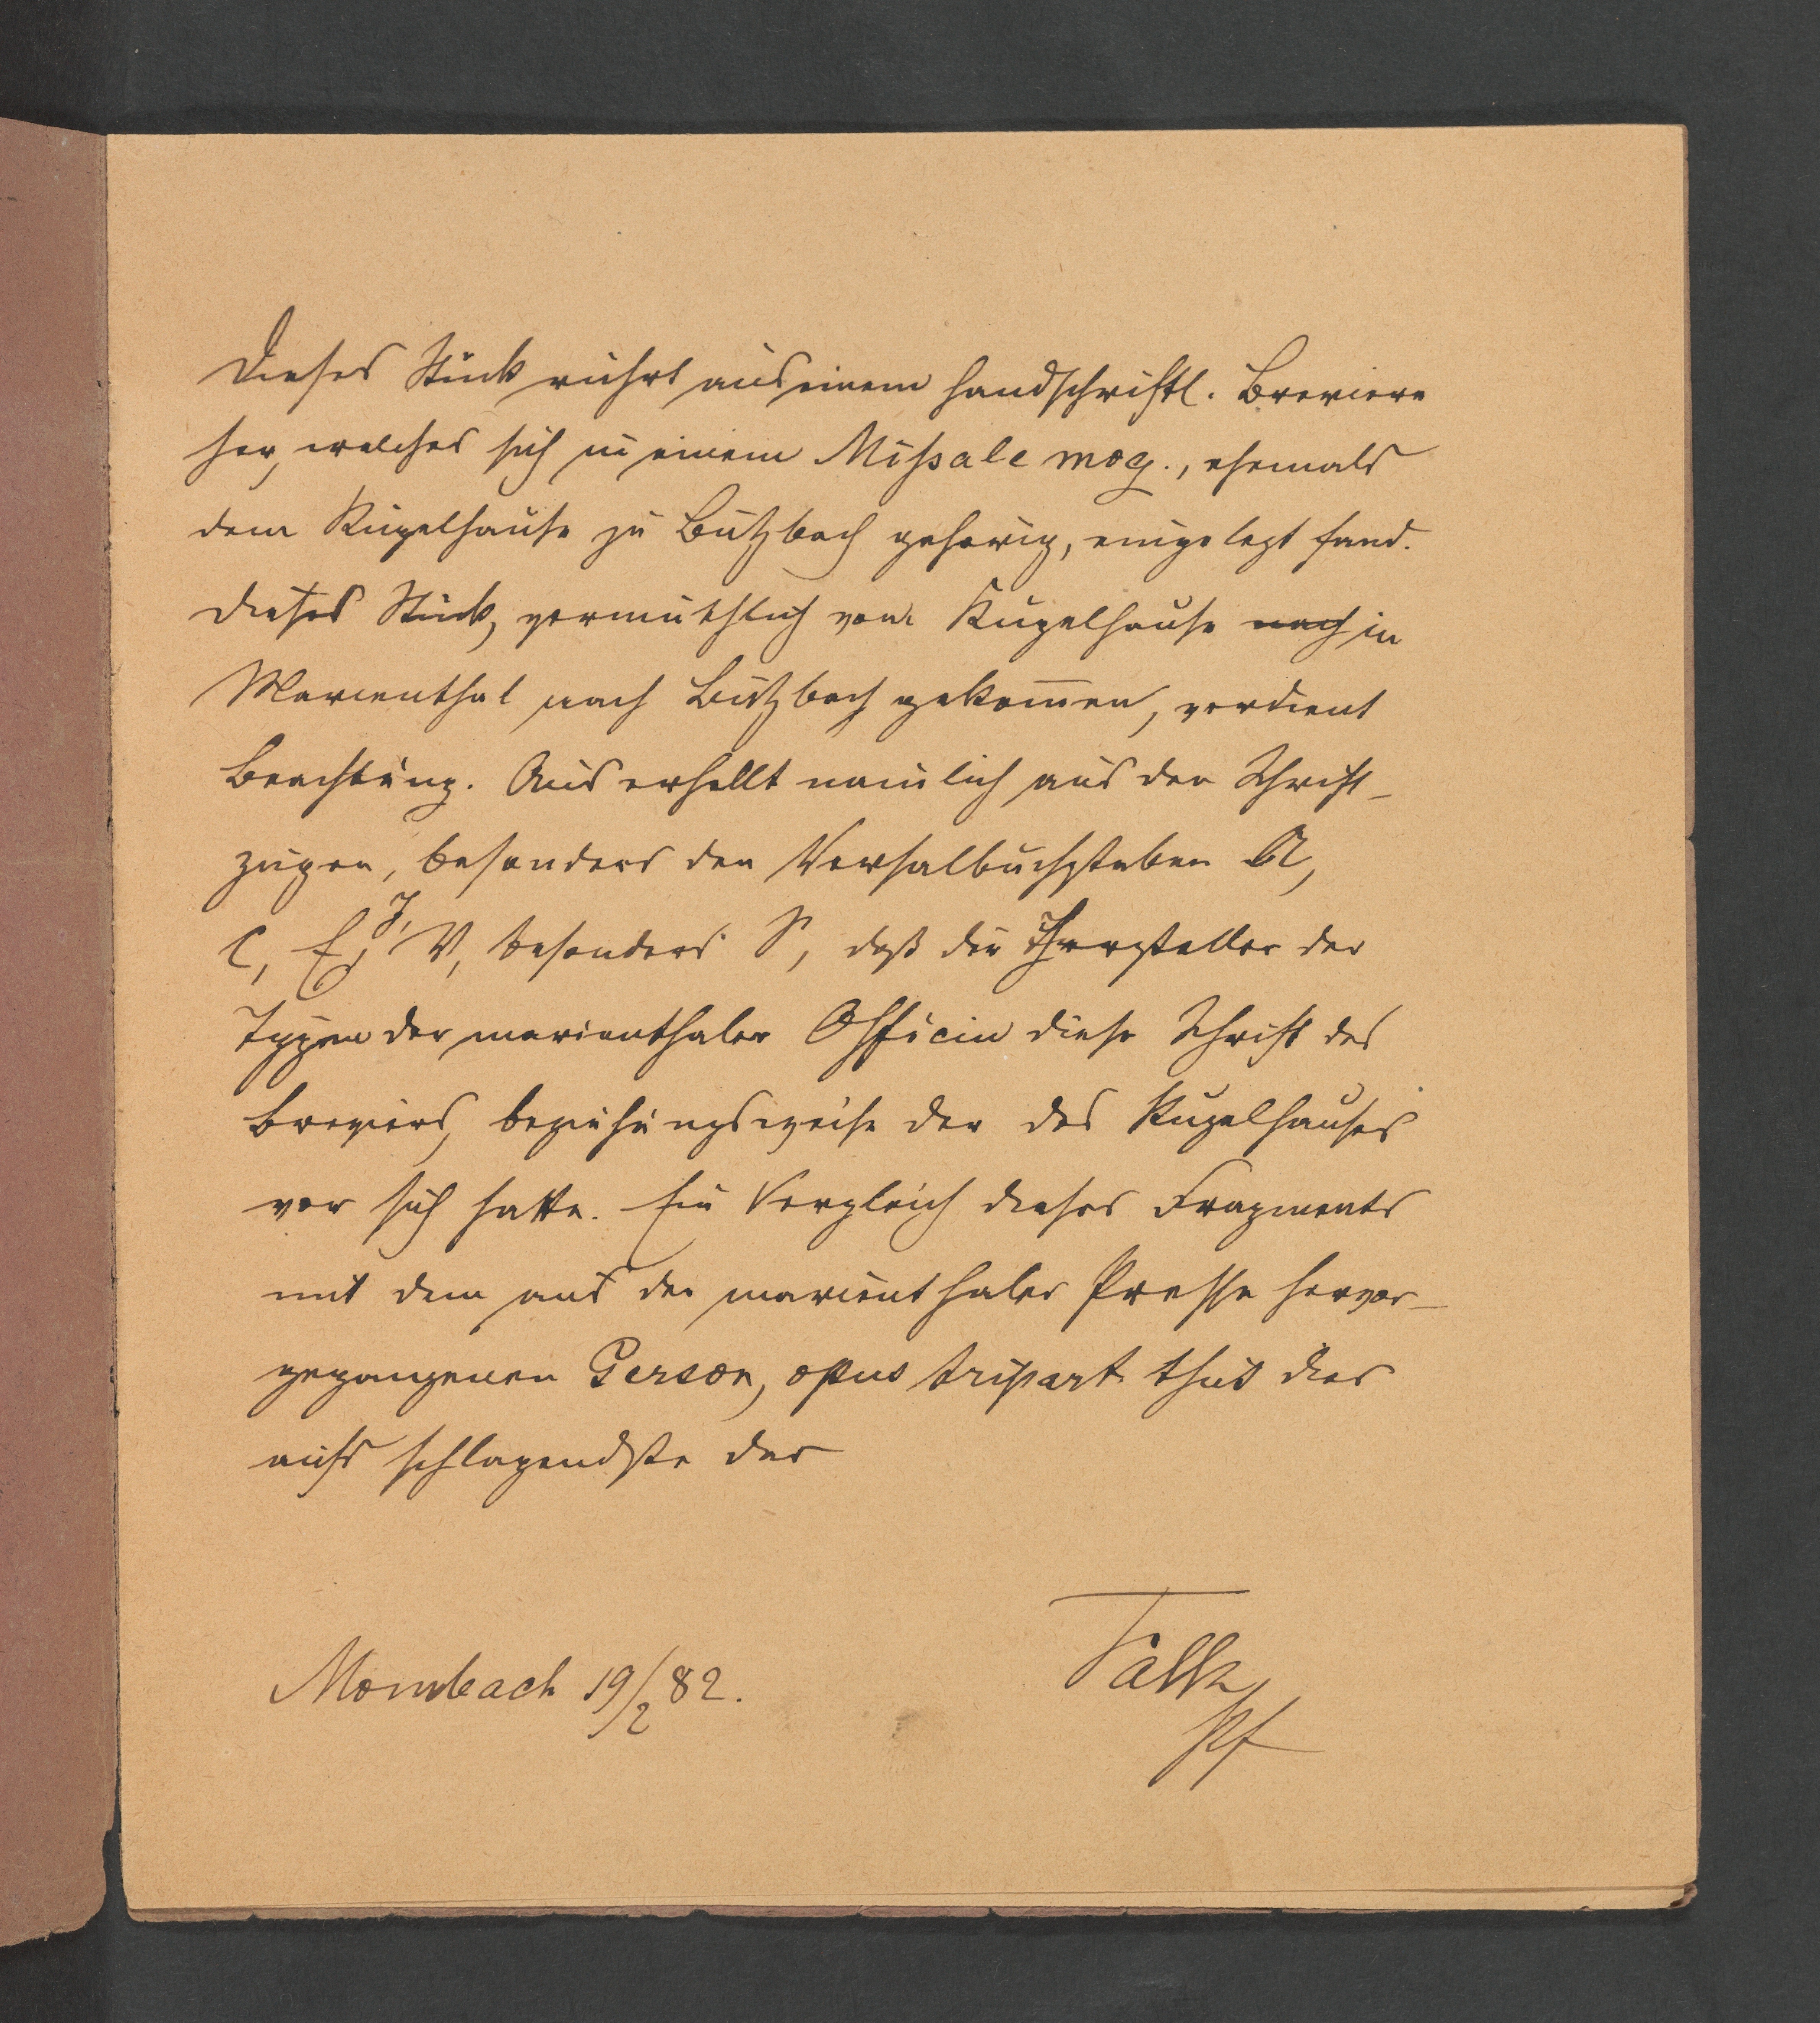 Dieses Stück rührt aus einem handschriftl. Breviere
her, welches sich in einem Missale mog., ehemals
dem Kugelhause zu Butzbach gehörig, eingelegt fand.
Dieses Stück, vermuthlich vom Kugelhause nach in
Marienthal nach Butzbach gekommen, verdient
Beachtung. Aus erhellt nämlich aus den Schrift-
zügen, besonders den Versalbuchstaben A,
C, E, J, V, besonders S, daß die Hersteller der
Typen der marienthaler Officin diese Schrift des
Breviers, beziehungsweise der des Kugelhauses
vor sich hatte. Ein Vergleich dieses Fragments
mit dem aus der marienthaler Presse hervor-
gegangenen Gerson, opus tripart. thut dies
aufs schlagendste dar
Mombach 19/2 82.
Falk
Pf